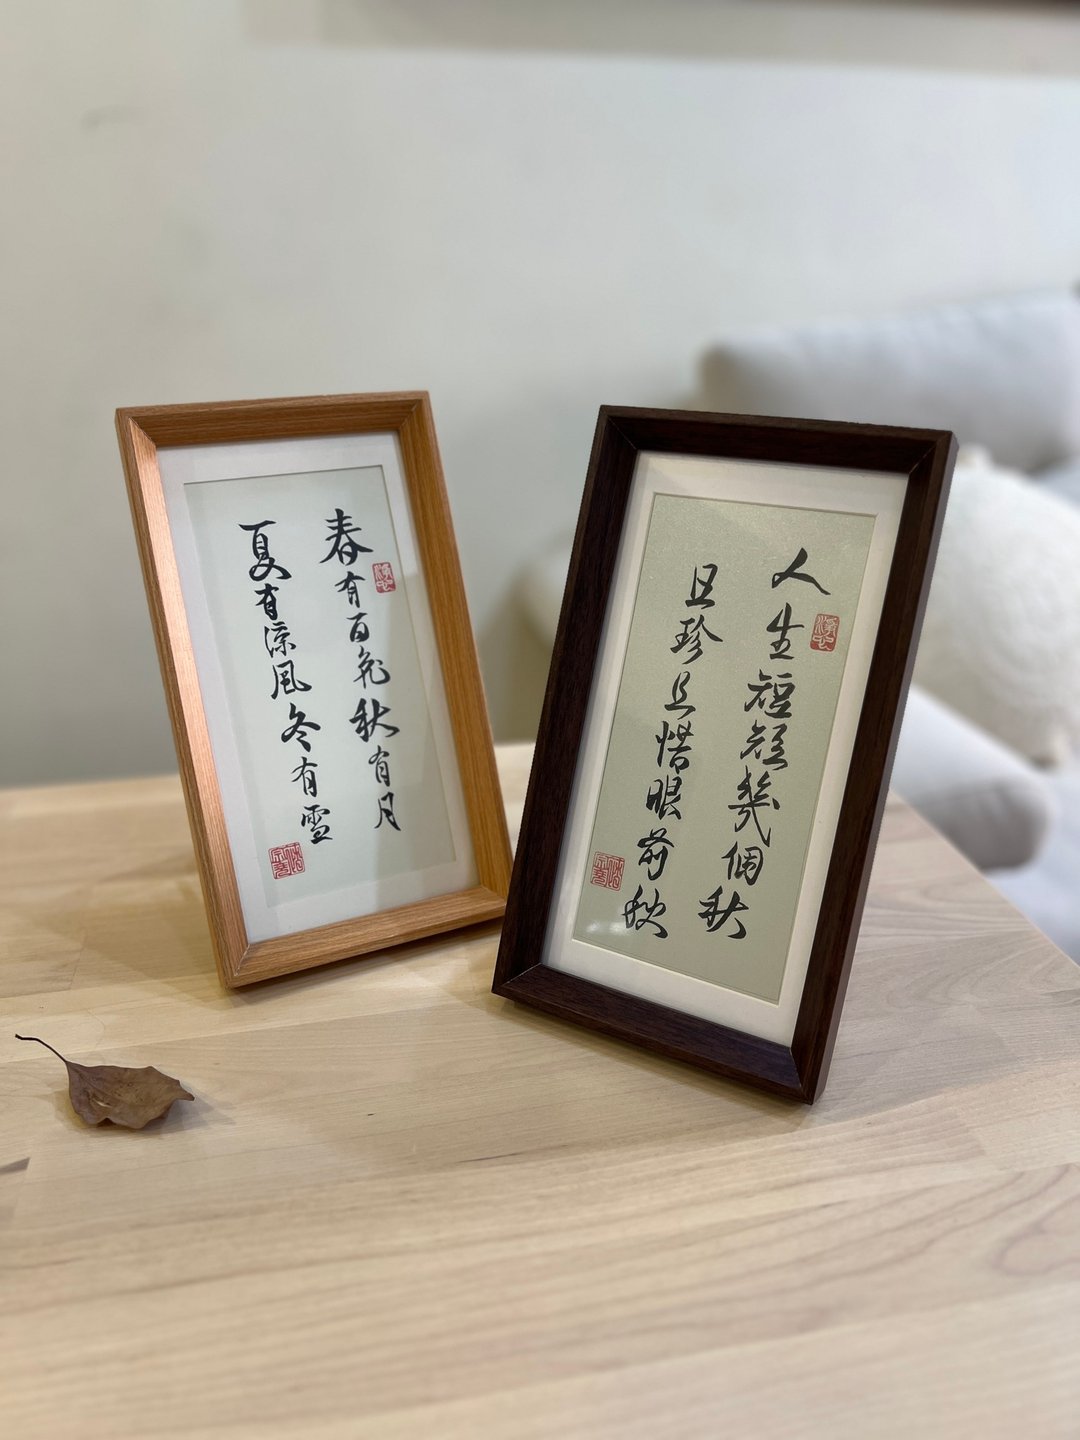 春有百花秋有月
夏有涼風冬有雪
人生短短幾個秋
且珍且惜眼前秋